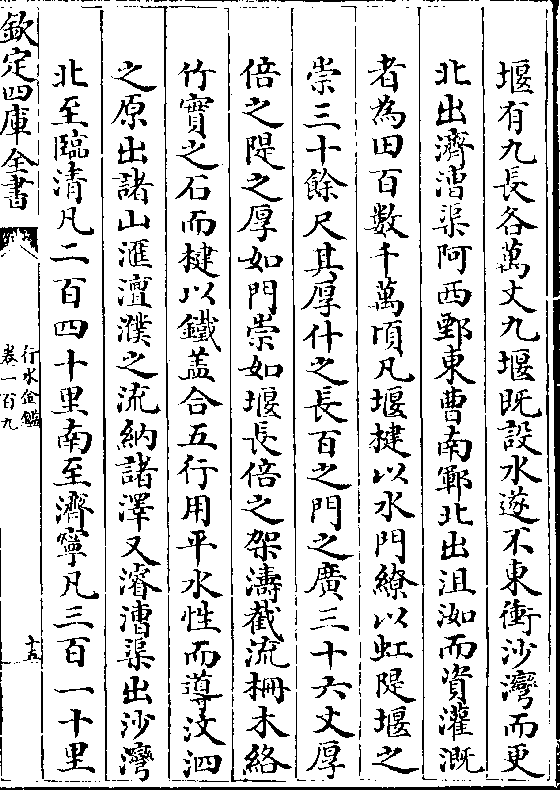 堰有九長各萬丈九堰既設水遂不東衝沙灣而更
北出濟漕渠阿西鄄東曹南鄆北出沮洳而資灌溉
者為田百數千萬頃凡堰楗以水門繚以虹隄堰之
崇三十餘尺其厚什之長百之門之廣三十六丈厚
倍之隄之厚如門崇如堰長倍之架濤截流柵木絡
竹實之石而楗以鐵盖合五行用平水性而導汶泗
之原出諸山滙澶濮之流納諸澤又濬漕渠出沙灣
北至臨清凡二百四十里南至濟寧凡三百一十里
欽定四庫全書
行水金鑑
卷一百九
十五